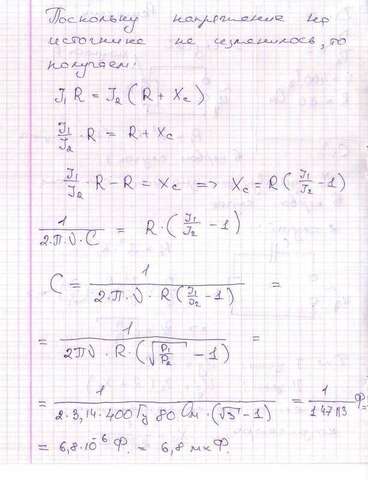 Поскольку напряжение на
источнике не изменилось, то
получаем:
J₁R = J₂(R + Xc)
J₁/J₂ · R = R + Xc
J₁/J₂ · R - R = Xc => Xc = R(J₁/J₂ - 1)
1/(2·π·ν·C) = R·(J₁/J₂ - 1)
C = 1/(2·π·ν·R(J₁/J₂ - 1)) =
= 1/(2πν·R·(√(P₁/P₂) - 1)) =
= 1/(2·3,14·400Гц 80 Ом·(√3 - 1)) = 1/147113 Ф =
= 6,8·10⁻⁶ Ф. = 6,8 мкФ.